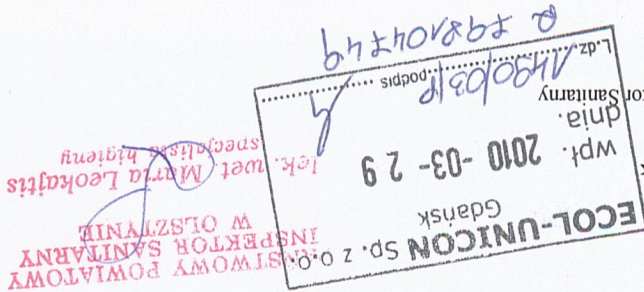 ECOL-UNICON Sp. z o.o.
Gdańsk
wpł. 2010 -03- 2 9
dnia.
L.dz. 1490/03/P podpis
tor Sanitarny
STWOWY POWIATOWY
INSPEKTOR SANITARNY
W OLSZTYNIE
lek. wet. Maria Leokajtis
specjalista higieny